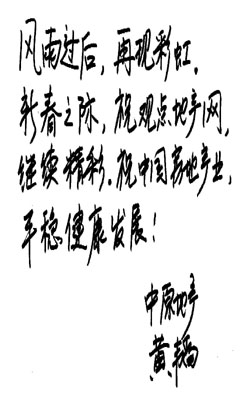 风雨过后，再现彩虹。
新春之际，祝观点地产网，
继续精彩。祝中国房地产业，
平稳健康发展！
中原地产
黄韬